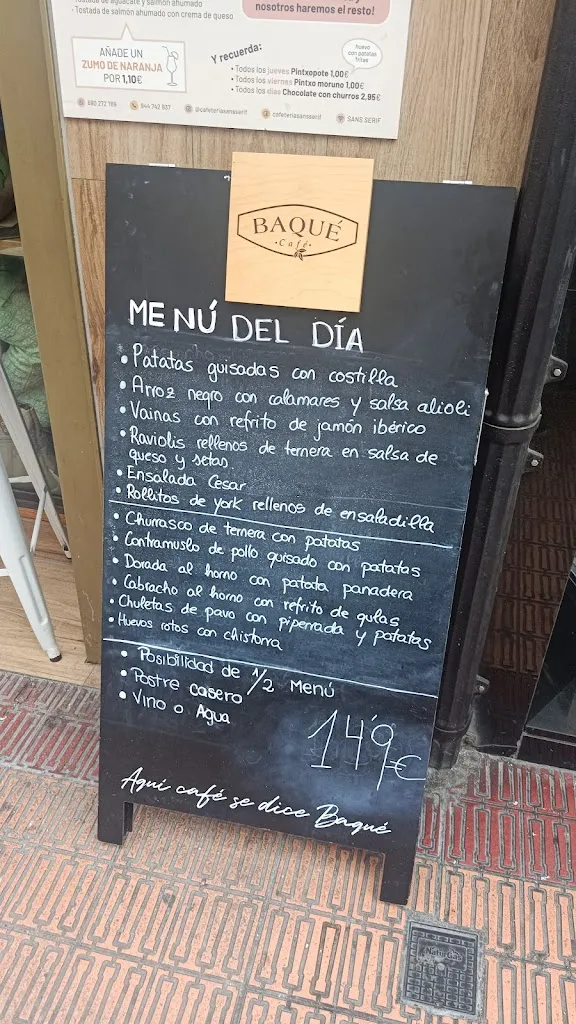 · Tostada de salmón ahumado con crema de queso
nosotros haremos el resto!
AÑADE UN
ZUMO DE NARANJA
POR 1,10€
Y recuerda:
• Todos los jueves Pintxopote 1,00€
• Todos los viernes Pintxo moruno 1,00€
• Todos los días Chocolate con churros 2,95€
huevo
con patatas
fritas
@cafeteriasansserif
cafeteriasansserif
SANS SERIF
BAQUÉ
· Café ·
MENÚ DEL DÍA
• Patatas guisadas con costilla
• Arroz negro con calamares y salsa alioli
• Vainas con refrito de jamón ibérico
• Raviolis rellenos de ternera en salsa de
queso y setas
• Ensalada Cesar
• Rollitos de york rellenos de ensaladilla
• Churrasco de ternera con patatas
• Contramuslo de pollo guisado con patatas
• Dorada al horno con patata panadera
• Cabracho al horno con refrito de gulas
• Chuletas de pavo con piperrada y patatas
• Huevos rotos con chistorra
• Posibilidad de 1/2 Menú
• Postre casero
• Vino o Agua
14'9€
Aquí café se dice Baqué